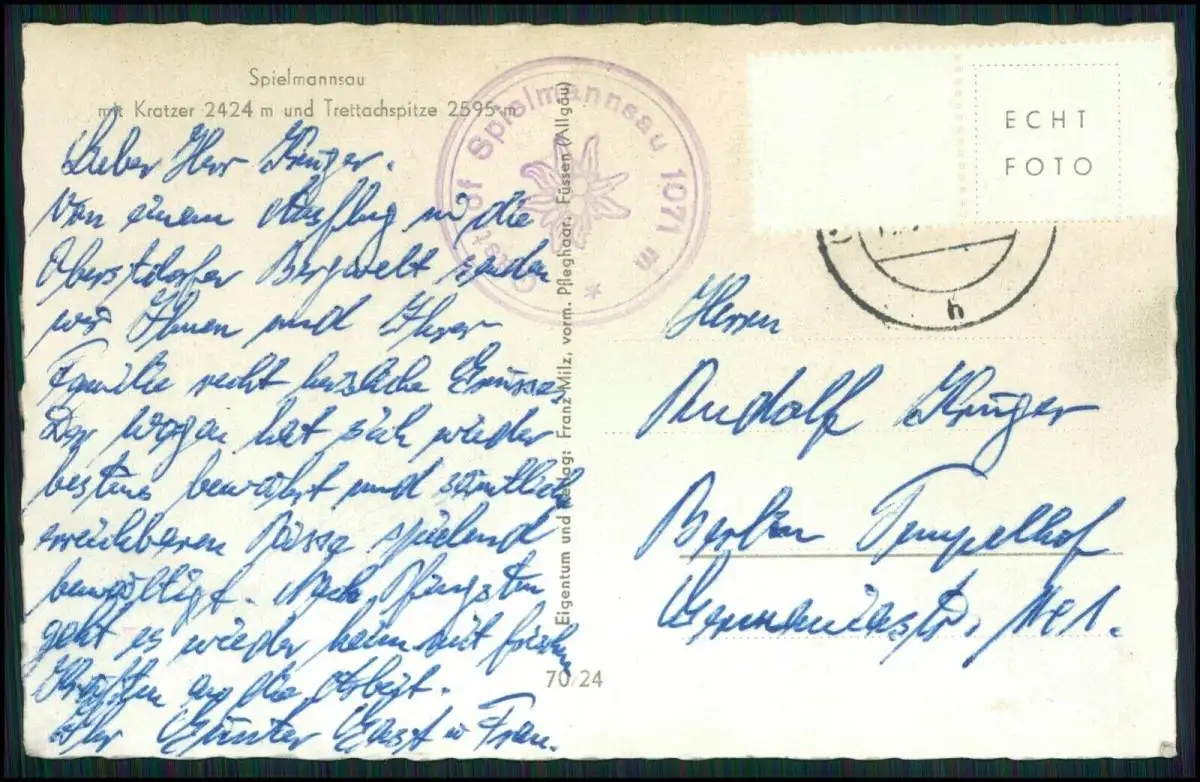 Spielmannsau
mit Kratzer 2424 m und Trettachspitze 2595 m
Lieber Herr Krüger.
Von einem Ausflug in die
Oberstdorfer Bergwelt senden
wir Ihnen und Ihrer
Familie recht herzliche Grüsse.
Der Wagen hat sich wieder
bestens bewährt und sämtlich
erreichbaren Pässe spielend
bewältigt. Nach Pfingsten
geht es wieder heim mit frischen
Kräften an die Arbeit.
Ihr Günter Gast u Frau.
Gasthof Spielmannsau 1071 m
*
Eigentum und Verlag: Franz Milz, vorm. Pfleghaar, Füssen (Allgäu)
70/24
ECHT
FOTO
h
Herrn
Rudolf Krüger
Berlin Tempelhof
Germaniastr.